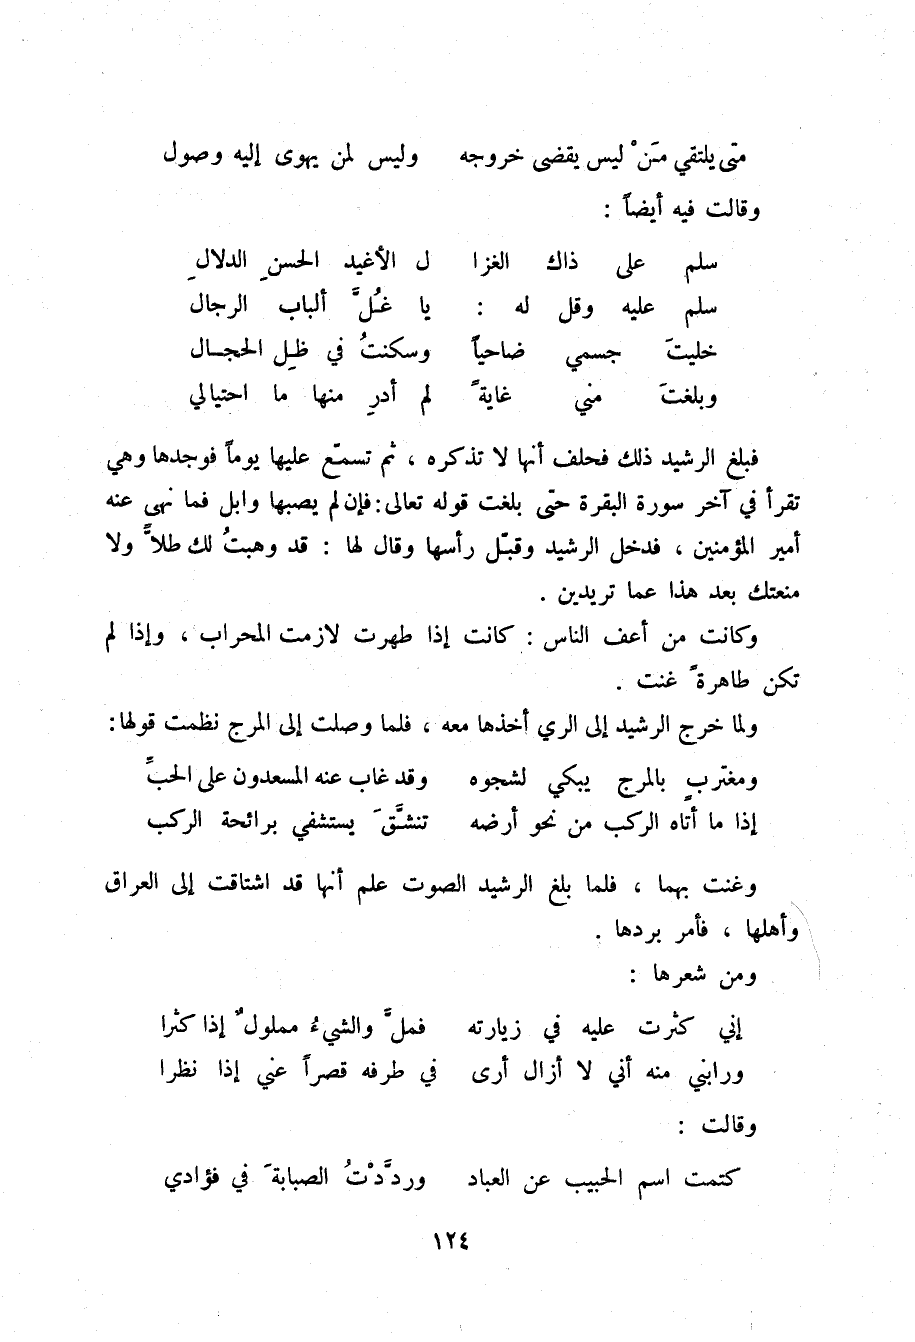 متى يلتقي مَنْ ليس يقضى خروجه    وليس لمن يهوى إليه وصول
وقالت فيه أيضاً :
سلم على ذاك الغزا    ل الأغيد الحسنِ الدلالِ
سلم عليه وقل له :    يا غُلَّ ألباب الرجال
خليتَ جسمي ضاحياً    وسكنتُ في ظِل الحجال
وبلغتَ مني غايةً    لم أدرِ منها ما احتيالي
فبلغ الرشيد ذلك فحلف أنها لا تذكره ، ثم تسمّع عليها يوماً فوجدها وهي
تقرأ في آخر سورة البقرة حتى بلغت قوله تعالى : فإن لم يصبها وابل فما نهى عنه
أمير المؤمنين ، فدخل الرشيد وقبّل رأسها وقال لها : قد وهبتُ لك طلاًّ ولا
منعتك بعد هذا عما تريدين .
وكانت من أعف الناس : كانت إذا طهرت لازمت المحراب ، وإذا لم
تكن طاهرةً غنت .
ولما خرج الرشيد إلى الري أخذها معه ، فلما وصلت إلى المرج نظمت قولها :
ومغتربٍ بالمرج يبكي لشجوه    وقد غاب عنه المسعدون على الحبِّ
إذا ما أتاه الركب من نحو أرضه    تنشَّقَ يستشفي برائحة الركب
وغنت بهما ، فلما بلغ الرشيد الصوت علم أنها قد اشتاقت إلى العراق
وأهلها ، فأمر بردها .
ومن شعرها :
إني كثرت عليه في زيارته    فملَّ والشيءُ مملولٌ إذا كثرا
ورابني منه أني لا أزال أرى    في طرفه قصراً عني إذا نظرا
وقالت :
كتمت اسم الحبيب عن العباد    وردَّدْتُ الصبابةَ في فؤادي
١٢٤